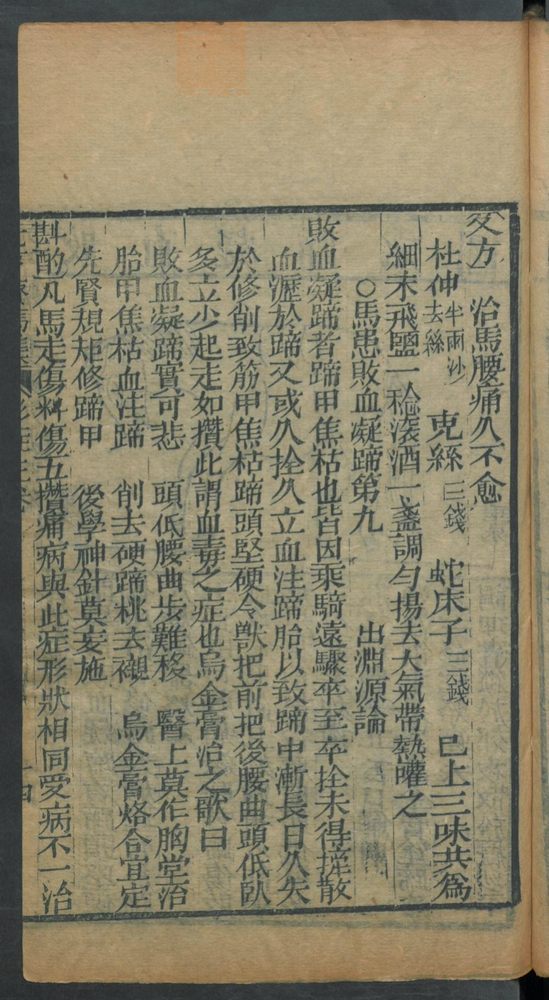 又方　治馬腰痛久不愈
杜仲半兩沙去絲　克絲三錢　蛇床子三錢　已上三味共爲
細末飛鹽一捻滚酒一盞調勻揚去大氣帶熱嚾之
○馬患敗血凝蹄第九　出淵源論
敗血凝蹄者蹄甲焦枯也皆因乘騎遠驟卒至卒拴未得摔散
血瀝於蹄又或久拴久立血注蹄胎以致蹄中漸長日久失
於修削致筋甲焦枯蹄頭堅硬令獸把前把後腰曲頭低臥
多立少起走如攢此謂血毒之症也烏金膏治之歌曰
敗血凝蹄實可悲　頭低腰曲步難移　醫上莫作胸堂治
胎甲焦枯血注蹄　削去硬蹄桃去襯　烏金膏烙合宜定
先賢規矩修蹄甲　後學神針莫妄施
斟酌凡馬走傷料傷五攢痛病與此症形狀相同愛病不一治